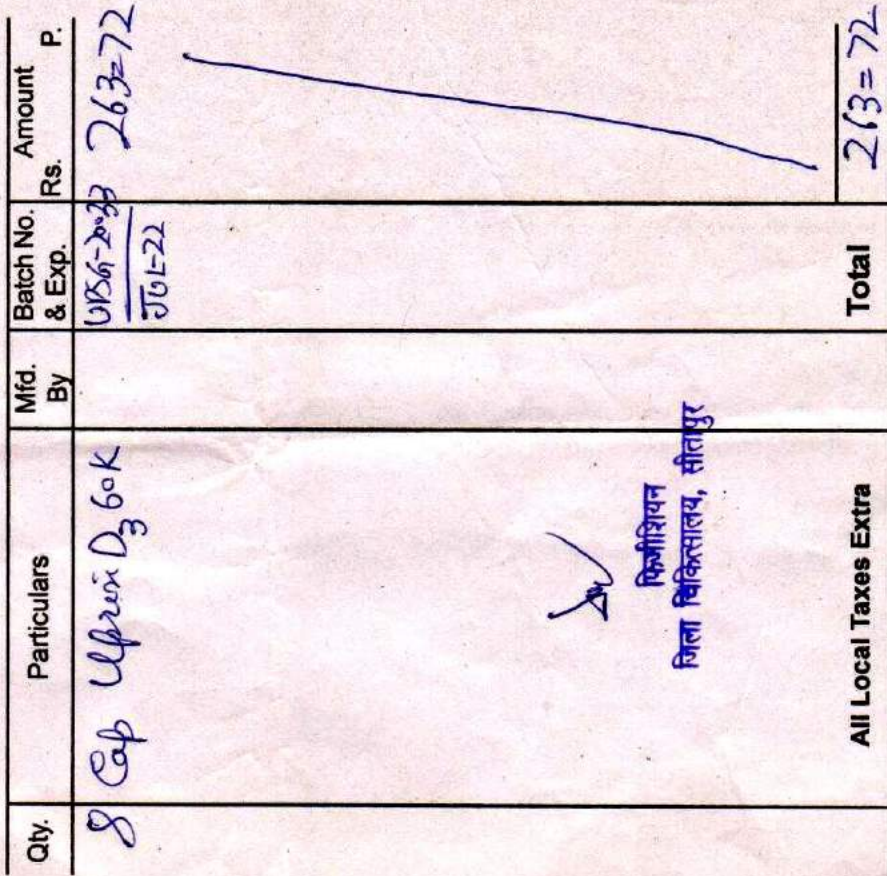 Qty. Particulars Mfd. By Batch No. & Exp. Amount Rs. P.
8 Cap Uprise D3 60K UDSG-20033 263=72
JUL-22
फिजीशियन
जिला चिकित्सालय, सीतापुर
All Local Taxes Extra Total 263=72